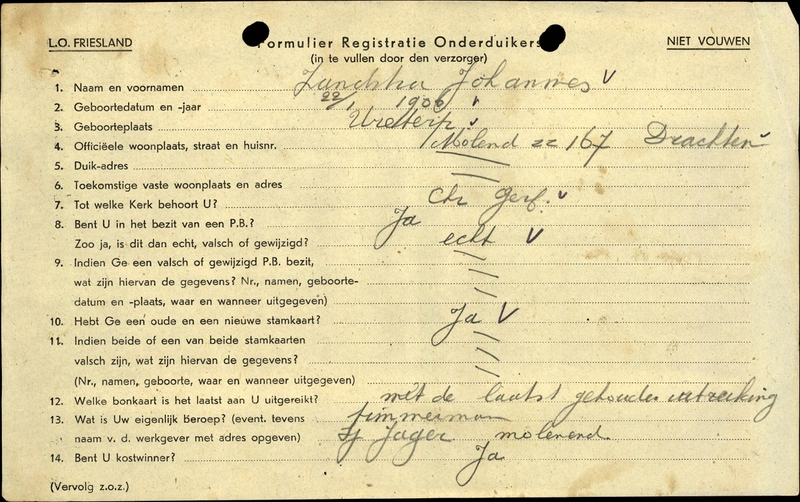 L.O. FRIESLAND
Formulier Registratie Onderduikers
NIET VOUWEN
(in te vullen door den verzorger)
1. Naam en voornamen Johannes
2. Geboortedatum en -jaar 22/1 1900
3. Geboorteplaats Ureterp
4. Officiëele woonplaats, straat en huisnr. Molend zz 167 Drachten
5. Duik-adres
6. Toekomstige vaste woonplaats en adres
7. Tot welke Kerk behoort U? Chr Geref.
8. Bent U in het bezit van een P.B.? Ja
Zoo ja, is dit dan echt, valsch of gewijzigd? echt
9. Indien Ge een valsch of gewijzigd P.B. bezit,
wat zijn hiervan de gegevens? Nr., namen, geboorte-
datum en -plaats, waar en wanneer uitgegeven)
10. Hebt Ge een oude en een nieuwe stamkaart? Ja
11. Indien beide of een van beide stamkaarten
valsch zijn, wat zijn hiervan de gegevens?
(Nr., namen, geboorte, waar en wanneer uitgegeven)
12. Welke bonkaart is het laatst aan U uitgereikt? met de laatst gehouden uitreiking
13. Wat is Uw eigenlijk beroep? (event. tevens timmerman
naam v. d. werkgever met adres opgeven) Jager molenend
14. Bent U kostwinner? Ja
(Vervolg z.o.z.)